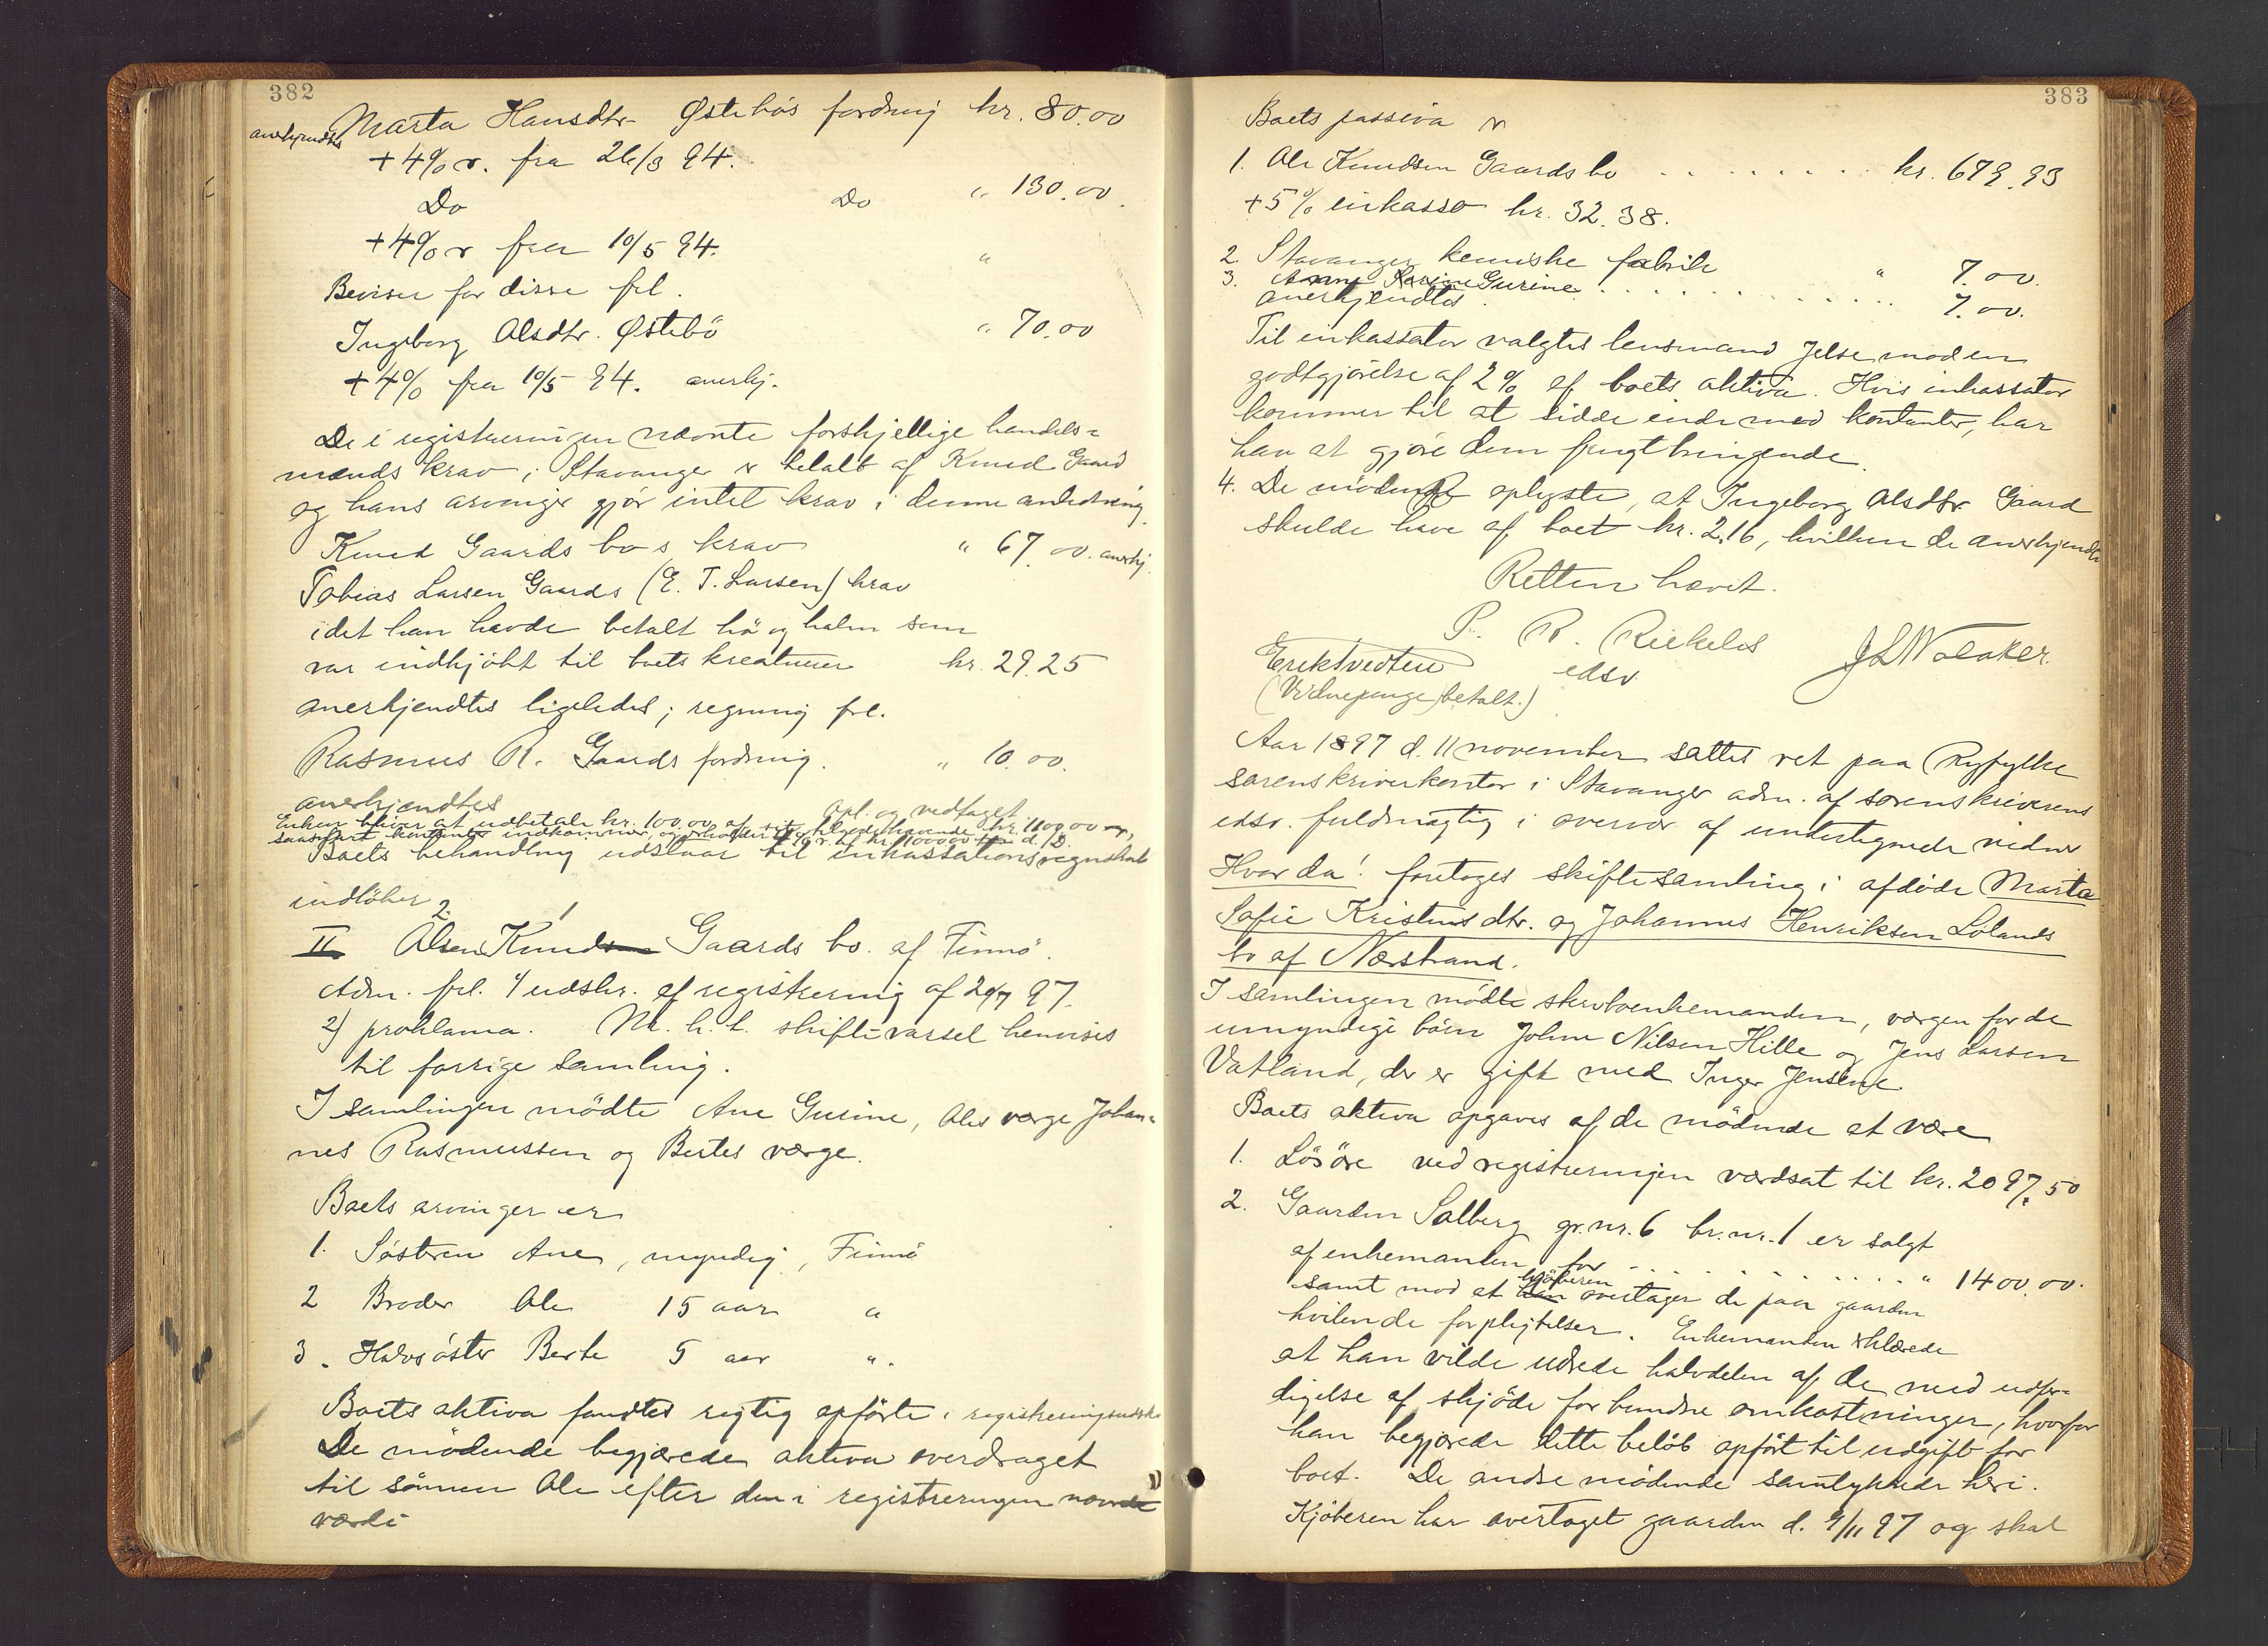 382
Marta Hansdtr Østebøs fordring kr. 80.00
anerkjendtes
+ 4% r. fra 26/3 94.
Do Do " 130.00.
+ 4% r fra 10/5 94. "
Beviser for disse frl.
Ingeborg Olsdtr. Østebö " 70.00
+ 4% fra 10/5 94. anerkj.
De i registreringen nævnte forskjellige handels=
mænds krav i Stavanger er betalt af Knud Gaard
og hans arvinger gjör intet krav i denne anledning.
Knud Gaards bo s krav " 67.00. anerkj.
Tobias Larsen Gaards (E. T. Larsen) krav
idet han havde betalt hö og halm som
var indkjöbt til boets kreaturer kr. 29.25
anerkjendtes ligeledes; regning frl.
Rasmus R. Gaards fordring. " 10.00.
anerkjendtes Opl. og vedtaget
Enken bliver at udbetale kr. 100.00 af sit tilgodehavende kr. 1100.00
saasnart kontanter indkommer, og
Boets behandling udstaar til inkassationsregnskab
indlöber
II Olsen 2 Knuds 1 Gaards bo af Finnö.
Adm. frl. 1/ udskr. af registrering af 20/7 97.
2) proklama. M. h. t. skifte=varsel henvises
til forrige samling.
I samlingen mödte Ane Gurine, Oles værge Johan=
nes Rasmussen og Bertes værge.
Boets arvinger er
1. Søsteren Ane, myndig, Finnö
2 Broder Ole 15 aar "
3. Halvsöster Berte 5 aar ".
Boets aktiva fandtes rigtig opförte i registreringsudskr
De mödende begjærede aktiva overdraget
til sönnen Ole efter den i registreringen nævnte
værdi
383
Boets passiva er
1. Ole Knudsen Gaards bo . . . . . . . . kr. 679.93
+ 5% inkasso kr. 32.38.
2. Stavanger kemiske fabrik " 7.00.
3. Anne Gurine . . . . . . . . . . . 7.00.
anerkjendtes
Til inkassator valgtes lensmand Jelse mod en
godtgjörelse af 2% af boets aktiva. Hvis inkassator
kommer til at sidde inde med kontanter, har
han at gjöre dem frugtbringende.
4. De mödende oplyste, at Ingeborg Olsdtr Gaard
skulde have af boet kr. 2.16, hvilken de anerkjendte
Retten hævet.
P. R. Rickeles
edsv
J L Wolaker.
Erik Tvedten
(Vidnepenge betalt.)
Aar 1897 d. 11 november sattes ret paa Ryfylke
sorenskriverkontor i Stavanger adm. af sorenskriverens
edsv. fuldmægtig i overvær af undertegnede vidner
Hvor da! foretoges skiftesamling i afdöde Marta
Sofie Kristensdtr. og Johannes Henriksen Lölands
bo af Nærstrand.
I samlingen mödte sterboenkemanden, værgen for de
umyndige börn Johne Nilsen Hille og Jens Larsen
Vatland, der er gift med Inger Jensine
Boets aktiva opgaves af de mödende at være
1. Lösöre ved registreringen værdsat til kr. 2097.50
2. Gaarden Solberg gr. nr. 6 br. nr. 1 er solgt
af enkemanden for . . . . . . . . . . . . . " 1400.00.
samt mod at kjöberen overtager de paa gaarden
hvilende forpligtelser. Enkemanden erklærede
at han vilde udrede halvdelen af de med udfær=
digelse af skjöde forbundne omkostninger, hvorfor
han begjærede dette belöb opfört til udgift for
boet. De andre mödende samtykkede heri.
Kjöberen har overtaget gaarden d. 9/11 97 og skal